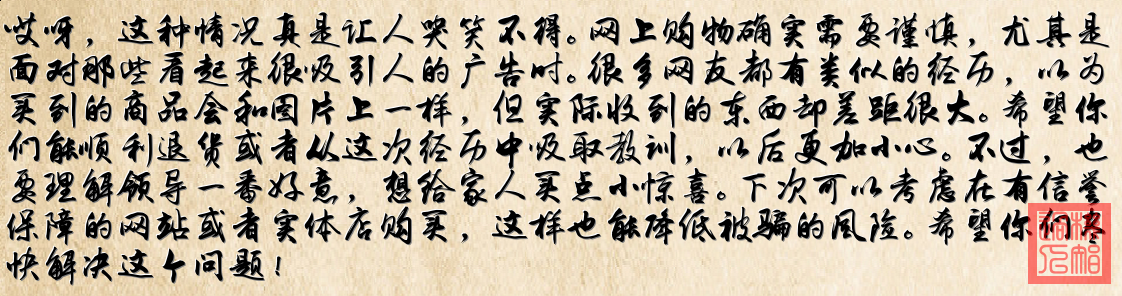 哎呀，这种情况真是让人哭笑不得。网上购物确实需要谨慎，尤其是
面对那些看起来很吸引人的广告时。很多网友都有类似的经历，以为
买到的商品会和图片上一样，但实际收到的东西却差距很大。希望你
们能顺利退货或者从这次经历中吸取教训，以后更加小心。不过，也
要理解领导一番好意，想给家人买点小惊喜。下次可以考虑在有信誉
保障的网站或者实体店购买，这样也能降低被骗的风险。希望你们尽
快解决这个问题！